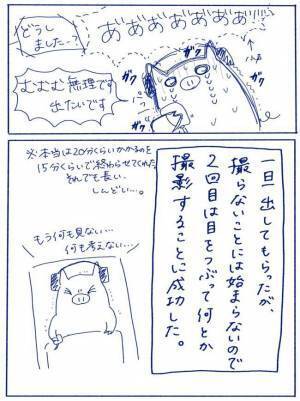 あ゛あ゛あ゛あ゛あ゛あ゛あ゛!!
どうし
ました…?
むむむ無理です
出たいです
ガク
ガク
ガク
ガク
一旦出してもらったが、
撮らないことには始まらないので
2回目は目をつぶって何とか
撮影することに成功した。
※本当は20分くらいかかるのを
15分くらいで終わらせてくれた。
それでも長い。
しんどい…。
もう何も見ない…
何も考えない…